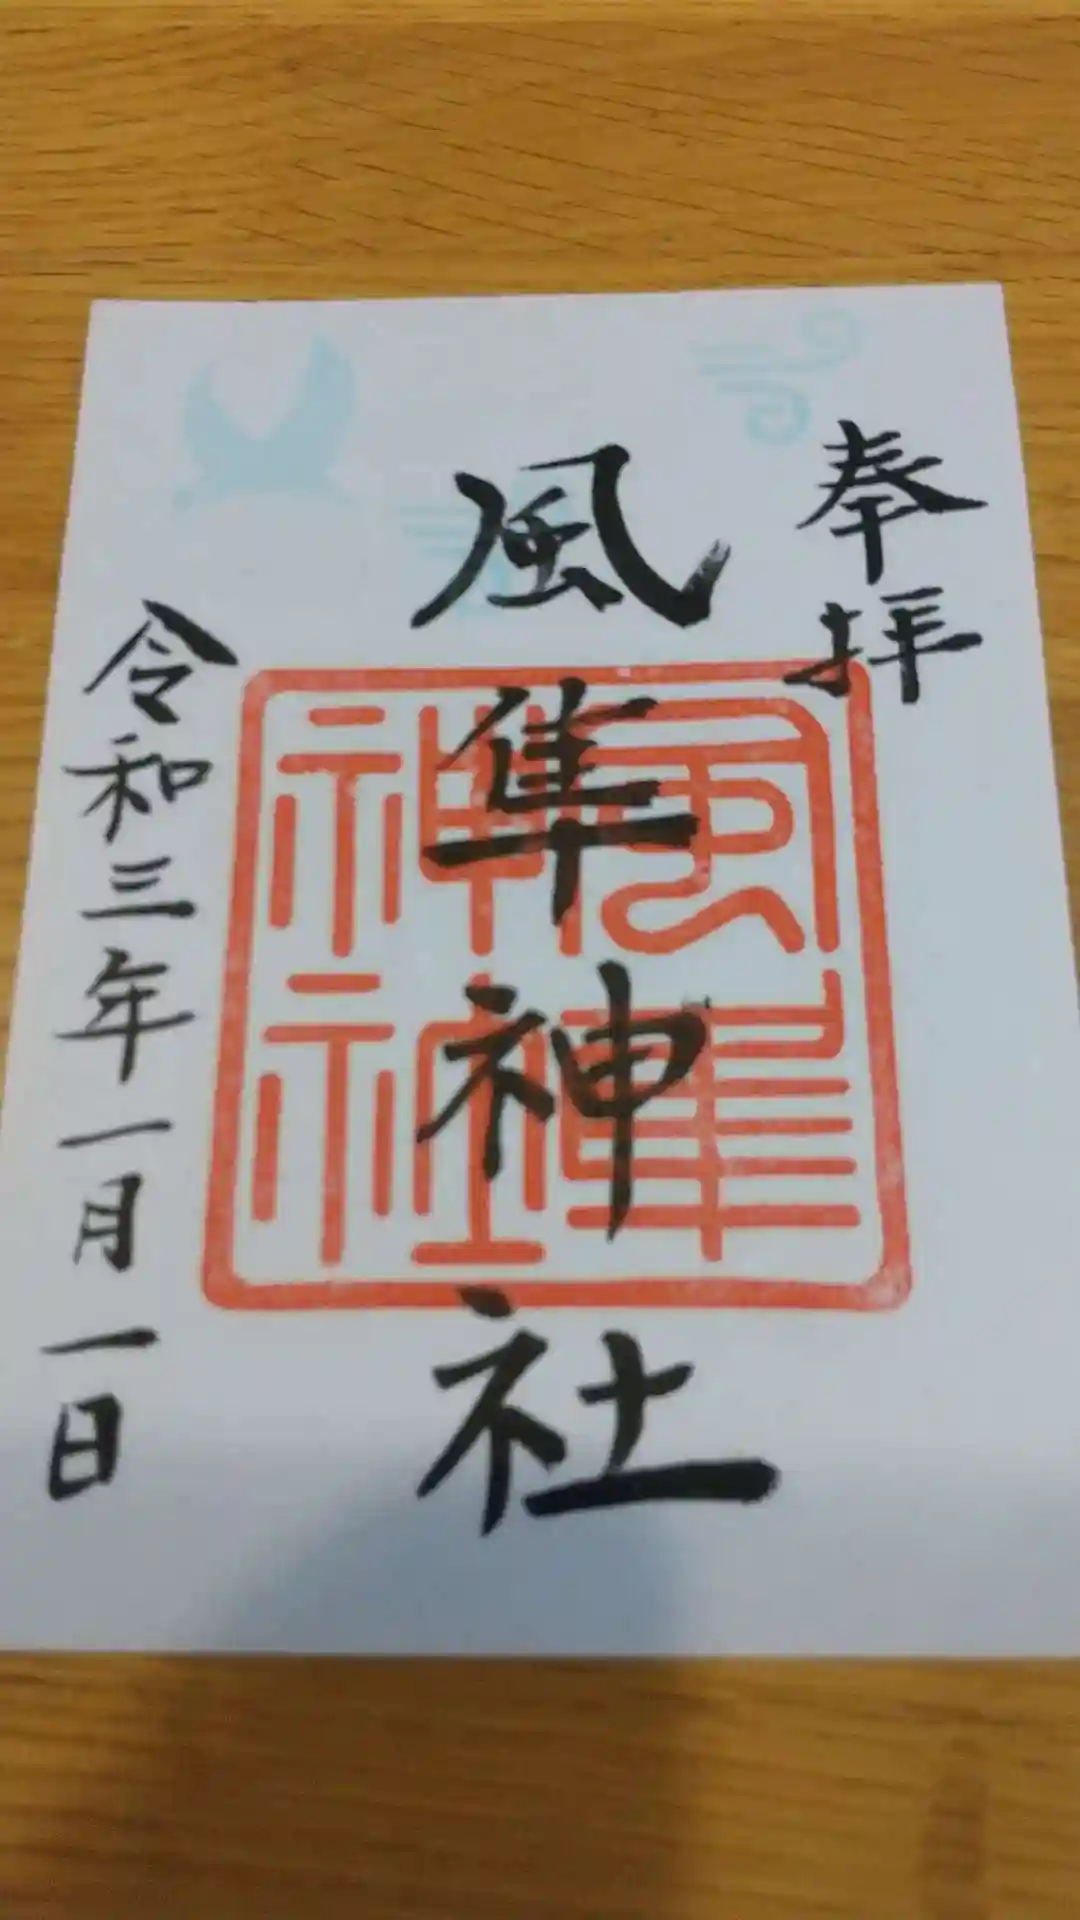 奉拝
風隼神社
風隼神社
令和三年一月一日